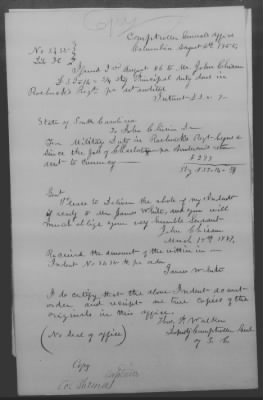 Copy
Comptroller Generals Office
Columbia August 6th
No 2432
Lib
Issued August 86 to Mr John Chisam
Sterling Principal duty done in
Roebucks Regt. pr act audited
Interest
State of South Carolina
To John Chisim Dr
For Militia Duty in Roebucks Regt
since the fall of Charleston pr
dent to currency
Stg
Gent
Please to Deliver the whole of my Indent
if ready to Mr James White, and you will
much oblige your very humble Servant
John Chisam
March 17th 1787
Received the amount of the within in
Indent No 2432 pr order
James White
I do certify that the above Indent account
order, and receipt are true copies of the
originals in this office.
Thos. H. Walker
Deputy Comptroller Genl
of S. C.
(No Seal of office)
Copy